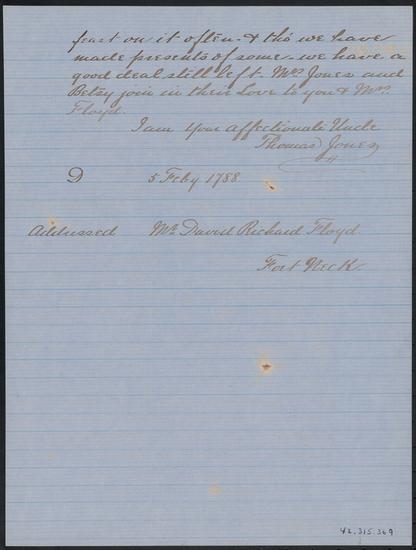 feast on it often & tho we have
made presents of some we have a
good deal still left. Mrs Jones and
Betsy join in their Love to you & Mrs
Floyd.
I am Your affectionate Uncle
Thomas Jones
D 5 Feby 1788
Addressed Mr David Richard Floyd
Fort Neck.
42.315.369